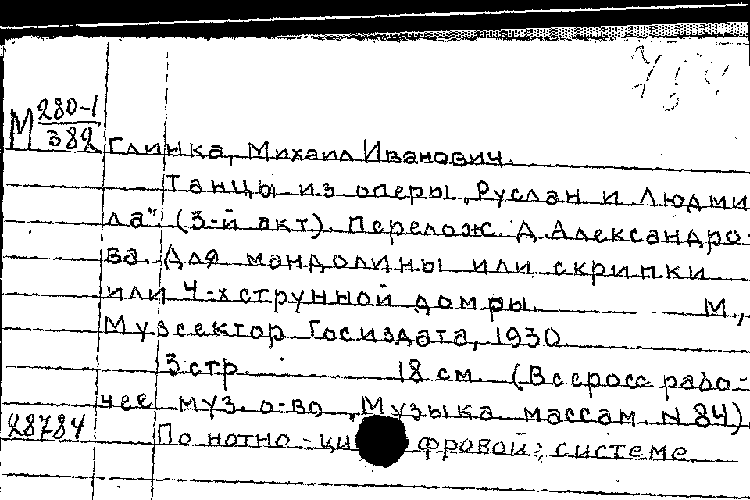 М 280-1
382
Глинка, Михаил Иванович.
Танцы из оперы „Руслан и Людми
ла" (3-й акт). Перелож. Д. Александро-
ва. Для мандолины или скрипки
или 4-х струнной домры. М.,
Музсектор Госиздата, 1930
3 стр. 18 см. (Всеросс. рабо-
чее муз. о-во „Музыка массам" N 84).
28784 По нотно-цифровой системе